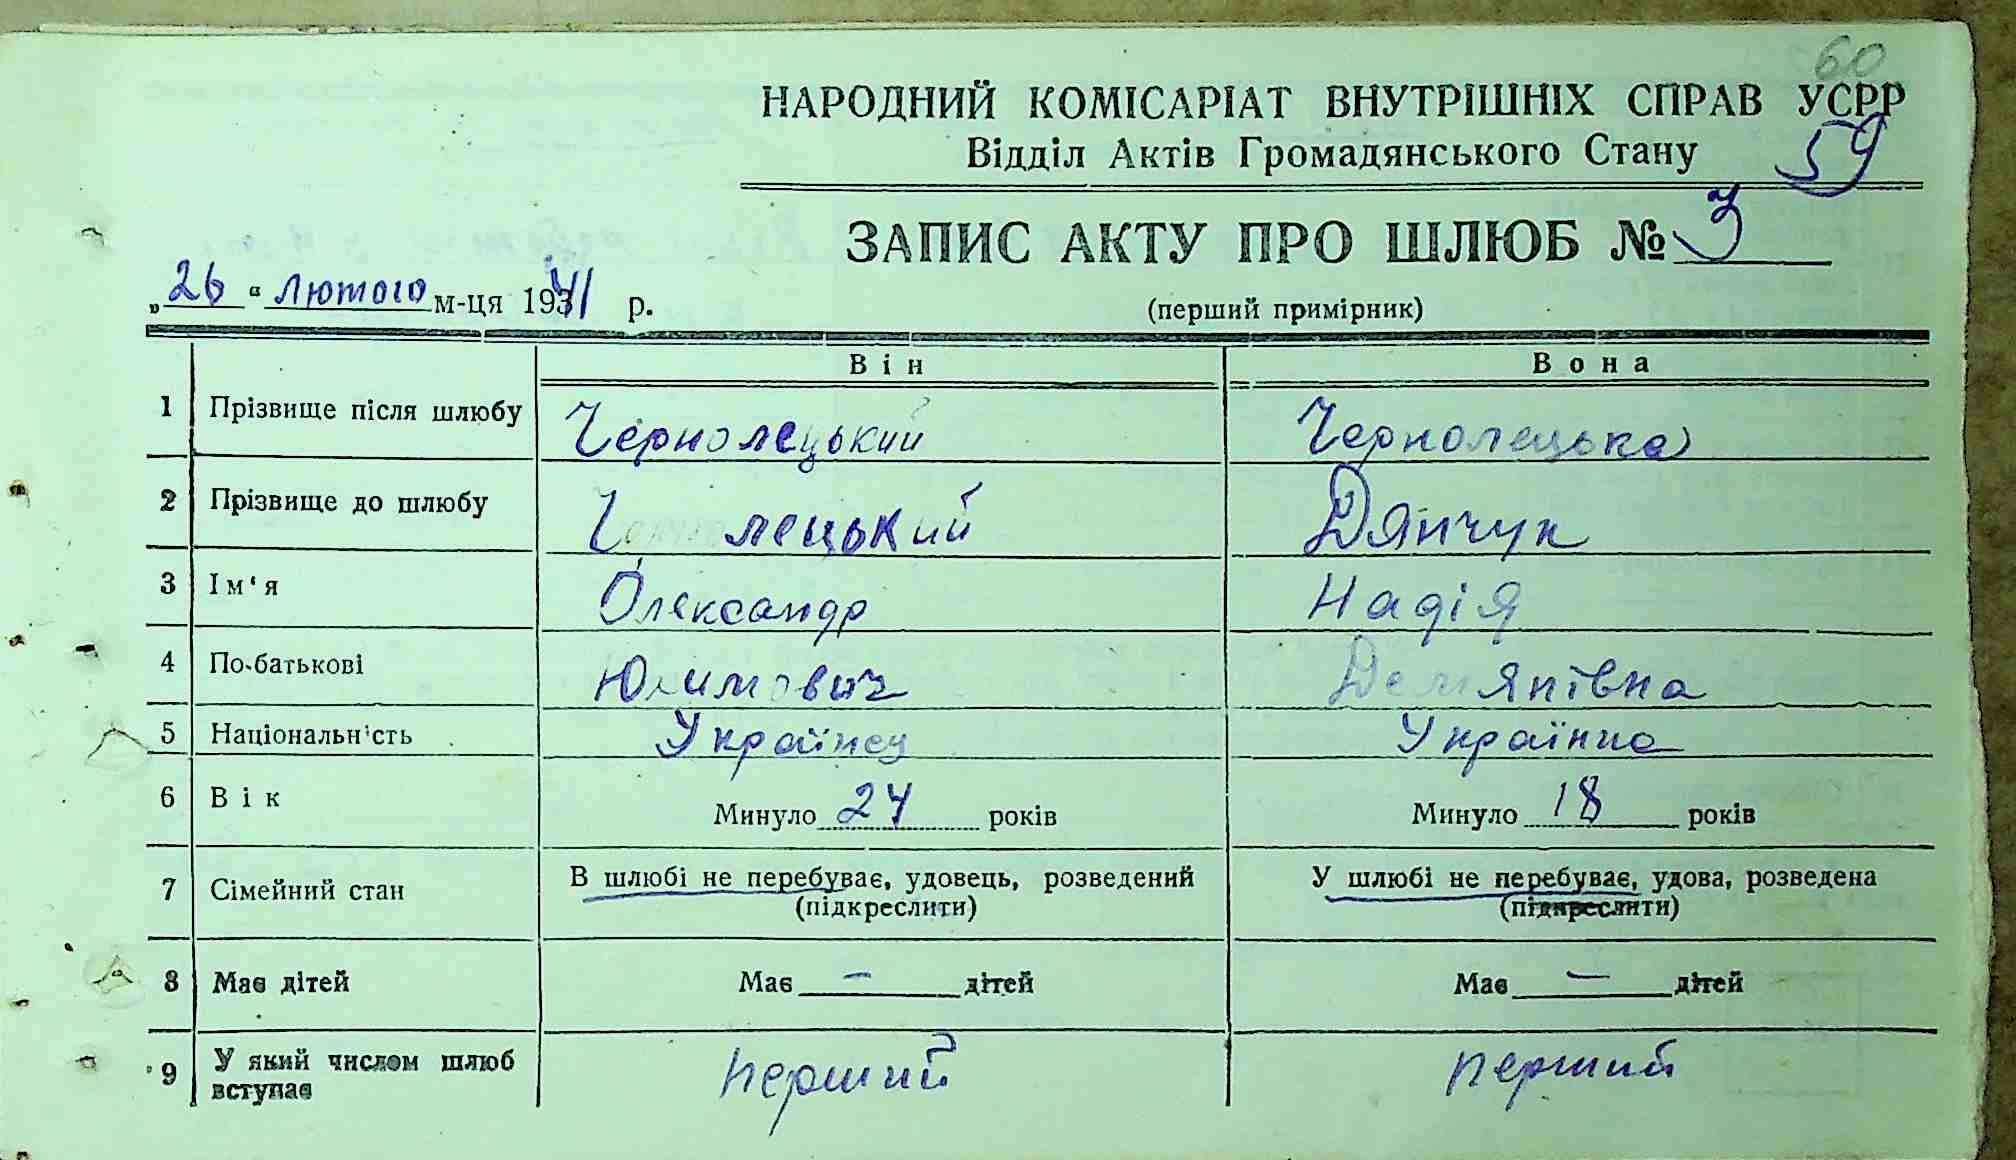 60
НАРОДНИЙ КОМІСАРІАТ ВНУТРІШНІХ СПРАВ УСРР
Відділ Актів Громадянського Стану
59
ЗАПИС АКТУ ПРО ШЛЮБ № 3
„26“ лютого м-ця 1941 р.
(перший примірник)
Він Вона
1 Прізвище після шлюбу Чернолецький Чернолецька
2 Прізвище до шлюбу Чернолецький Дянчук
3 Ім'я Олександр Надія
4 По-батькові Юхимович Демянівна
5 Національність Українец Українка
6 Вік Минуло 24 років Минуло 18 років
7 Сімейний стан В шлюбі не перебуває, удовець, розведений У шлюбі не перебуває, удова, розведена
(підкреслити) (підкреслити)
8 Має дітей Має — дітей Має — дітей
9 У який числом шлюб вступає перший перший